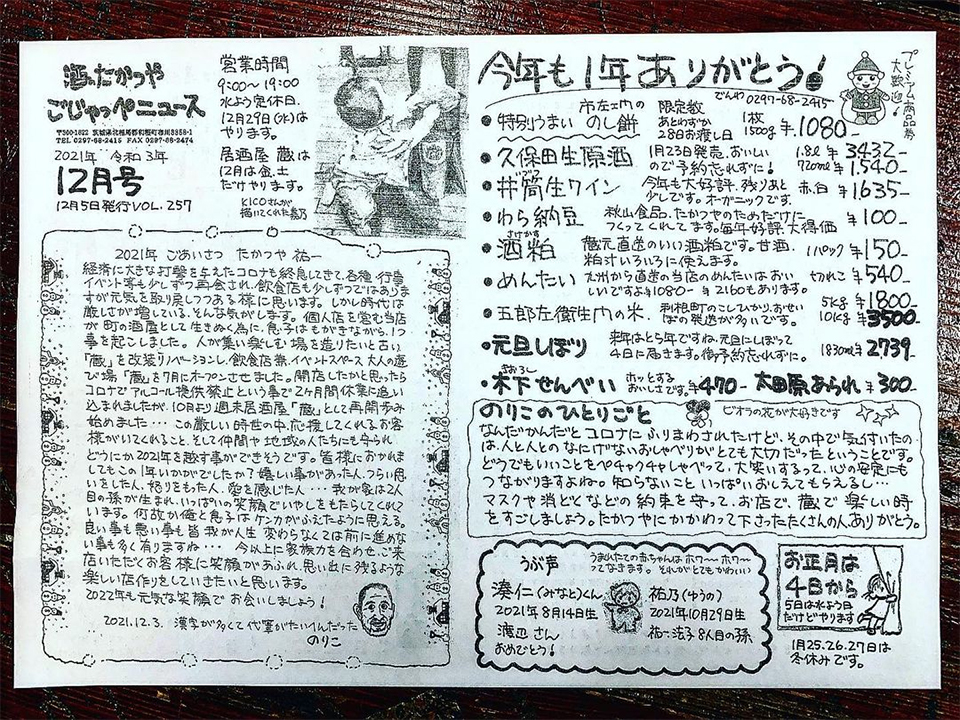 酒のたかつや
ごじゃっぺニュース
〒300-1622 茨城県北相馬郡利根町布川3358-1
TEL 0297-68-2415 FAX 0297-68-2474
2021年 令和3年
12月号
12月5日発行 VOL.257
営業時間
9:00〜19:00
水よう定休日.
12月29日(水)は
やります。
居酒屋 蔵は
12月は金.土
だけやります。
KICOさんが
描いてくれた
2021年 ごあいさつ たかつや 祐一
経済に大きな打撃を与えたコロナも終息してきて、各種行事
イベント等も少しずつ再会され、飲食店も少しずつではあります
すが元気を取戻しつつある様に思います。しかし時代は
厳しさが増している、そんな気がします。個人店を営む当店
が町の酒屋として生きぬく為に、息子はもがきながら、1つ
事を起こしました。人が集い楽しむ場を造りたいと古い
「蔵」を改装リノベーションし、飲食店兼イベントスペース 大人の遊
び場「蔵」を7月にオープンさせました。開店したかと思ったら
コロナでアルコール提供禁止という事で2ヶ月間休業に追い
込まれましたが、10月より週末居酒屋「蔵」として再開歩み
始めました… この厳しい時世の中、応援してくれるお客
様がいてくれること、そして仲間や地域の人たちにも守られ
どうにか2021年を越す事ができそうです。皆様におかれま
してもこの1年いかがでしたか？嬉しい事があった人、つらい思
いをした人、怒りをもった人、愛を感じた人… 我が家は2人
目の孫が生まれ、いっぱいの笑顔でいやしをもたらしてくれて
います。何故か俺と息子はケンカがふえたように思える。
良い事も悪い事も皆我が人生 変わらなくては前に進めな
い事も多く有りますね… 今以上に家族力を合わせ、ご来
店いただくお客様に笑顔があふれ、思い出に残るような
楽しい店作りをしていきたいと思います。
2022年も元気な笑顔でお会いしましょう！
2021.12.3. 漢字が多くて代筆がたいへんだった
のりこ
今年も1年ありがとう！
でんわ 0297-68-2415
プレミアム商品券
大歓迎！
● 特別うまい 市左エ門の のし餅 限定数 あとわずか 28日お渡し日 1枚 1500g ¥1080-
● 久保田生原酒 1月23日発売、おいしい ので予約忘れずに！ 1.8ℓ ¥3432- 720ml ¥1.540-
● 井筒生ワイン 今年も大好評、残りあと 少しです。オーガニックです。 赤.白 ¥1.635-
● わら納豆 秋山食品、たかつやのためだけに つくってくれてます。毎年好評、大得価 ¥100-
● 酒粕 さけかす 蔵元直送のいい酒粕です。甘酒. 粕汁いろいろに使えます。 1パック ¥150-
● めんたい 九州から直送の当店のめんたいはおい しいですよ¥1080- ¥2160もあります。 切れこ ¥540-
● 五郎左衛生門の米. 利根町のこしひかり、おせい ぼの発送が多いです。 5kg ¥1800- 10kg ¥3500-
● 元旦しぼり 来年はとら年ですね、元旦にしぼって 4日に届きます。御予約忘れずに。 1830ml ¥2739-
● 木下せんべい きおろし ホッとする おいしさです。 ¥470- 太田原あられ ¥300-
のりこのひとりごと ビオラの花が大好きです
なんだかんだとコロナにふりまわされたけど、その中で気付いたの
は、人と人とのなにげないおしゃべりがとても大切だったということです。
どうでもいいことをペチャクチャしゃべって、大笑いするって、心の安定にも
つながりますよね。知らないこといっぱいおしえてもらえるし…
マスクや消どくなどの約束を守って、お店で、蔵で楽しい時
をすごしましょう。たかつやにかかわって下さったたくさんの人、ありがとう。
うぶ声
うまれたての赤ちゃんはホワ〜ホワ〜
ってなきます。それがとてもかわいい
湊仁(みなと)くん
2021年8月14日生
渡辺さん
おめでとう！
祐乃(ゆうの)
2021年10月29日生
祐一.法子 8人目の孫
お正月は
4日から
5日は水よう日
だけどやります
1月25.26.27日は
冬休みです。